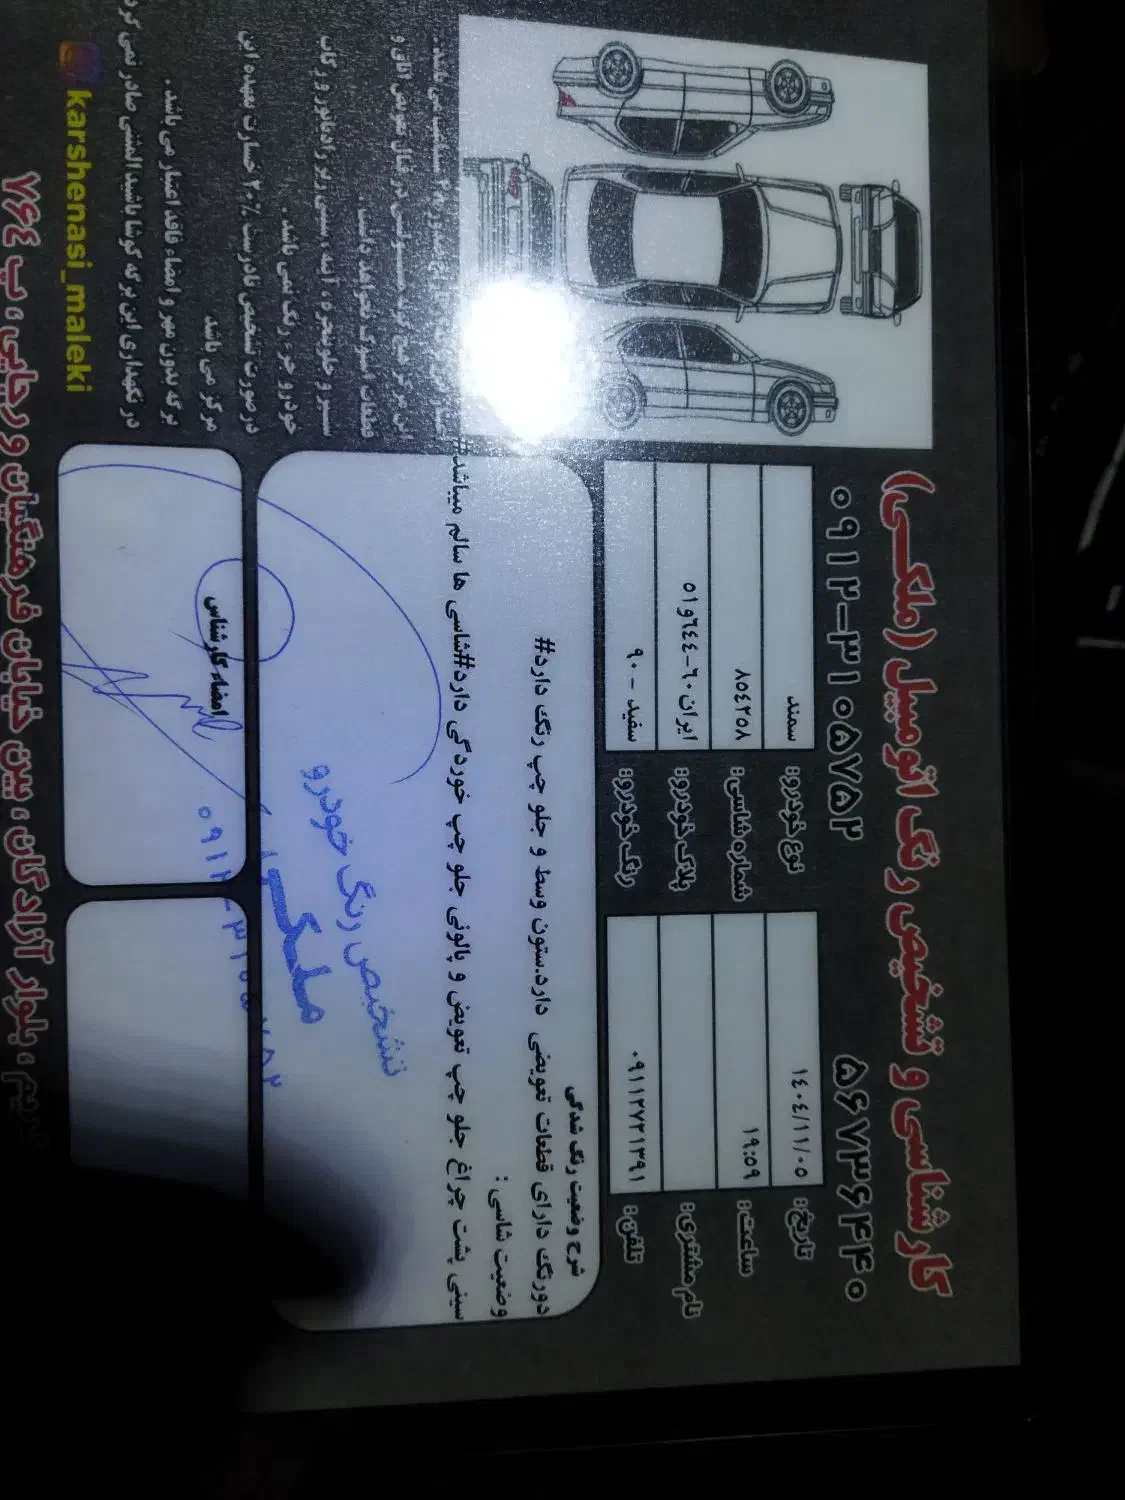 کارشناسی و تشخیص رنگ اتومبیل (ملکی)
۵۶۷۳۶۴۴۰
۰۹۱۲-۳۱۰۵۷۵۲
تاریخ: ۱۴۰۴/۱۱/۰۵
ساعت: ۱۹:۵۹
نام مشتری:
تلفن: ۰۹۱۱۲۷۲۱۳۹۱
نوع خودرو: سمند
شماره شاسی: ۸۵۴۲۵۸
پلاک خودرو: ایران ۶۰-۶۴۴و۵۱
رنگ خودرو: سفید - ۹۰
شرح وضعیت رنگ شدگی
دورنگ دارای قطعات تعویضی دارد.ستون وسط و جلو چپ رنگ دارد#
وضعیت شاسی :
سینی پشت چراغ جلو چپ تعویض و پالونی جلو چپ خوردگی دارد#شاسی ها سالم میباشد#
قطعات استوک نخواهد داشت.
خودرو جزء رنگ نمی باشد.
در صورت تشخیص نادرست ۲۰٪ خسارت بعهده این
مرکز می باشد
برگه بدون مهر و امضاء فاقد اعتبار می باشد.
در نگهداری این برگه کوشا باشید المثنی صادر نمی گردد
karshenasi_maleki
امضاء کارشناس
تشخیص رنگ خودرو
ملکی
۰۹۱۲-۳۱۰۵۷۵۲
بلوار آزادگان، بین خیابان فرهنگیان و رجایی، پ ۷۶۴